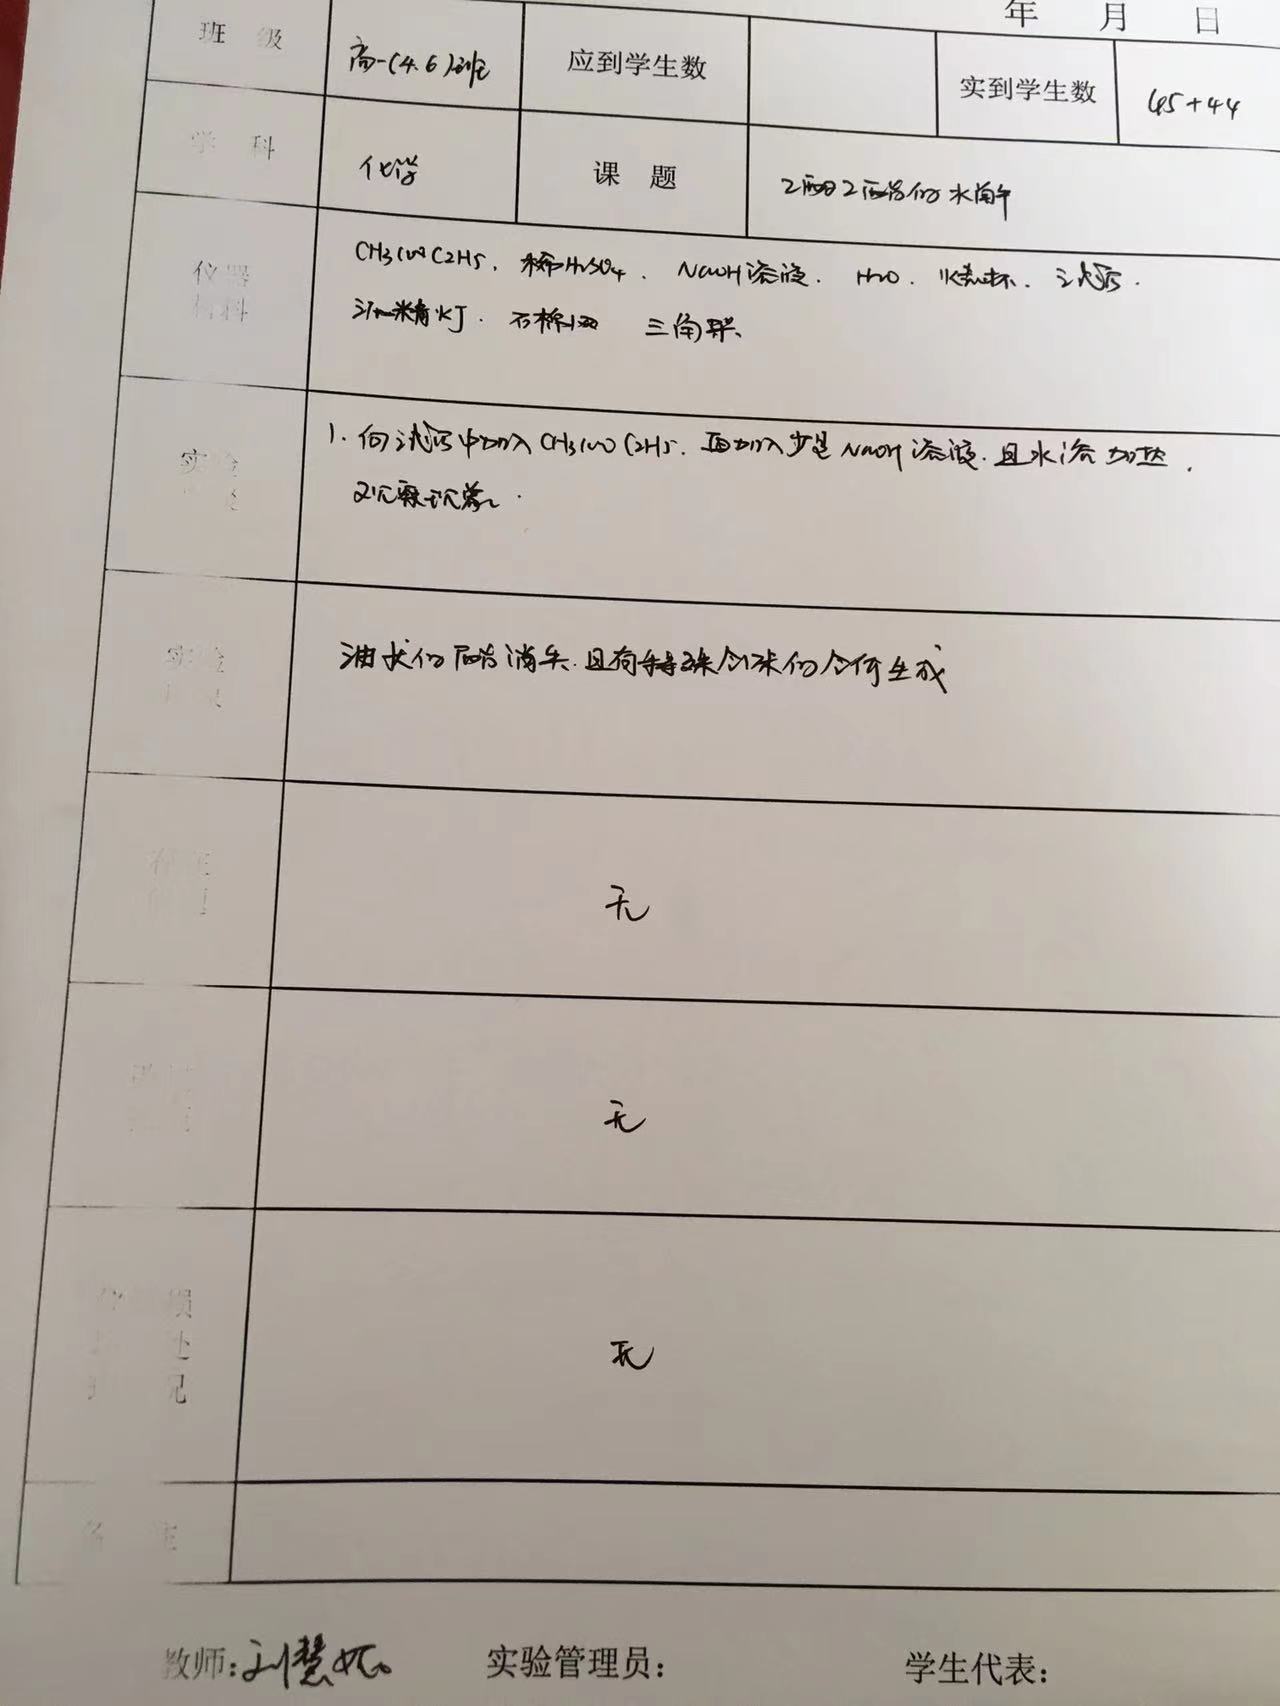 年 月 日
班 级 高一(4.6)班 应到学生数 实到学生数 45+44
学 科 化学 课 题 乙酸乙酯的水解
仪器 CH3COOC2H5、稀H2SO4、NaOH溶液、H2O、烧杯、试管、
材料 酒精灯、石棉网 三角架、
实验 1. 向试管中加入CH3COOC2H5、再加入少量NaOH溶液、且水浴加热,
观察现象
实验 油状的酯消失、且有特殊气味的气体生成
无
无
损 无
处
况
备 注
教师:刘慧 实验管理员: 学生代表: